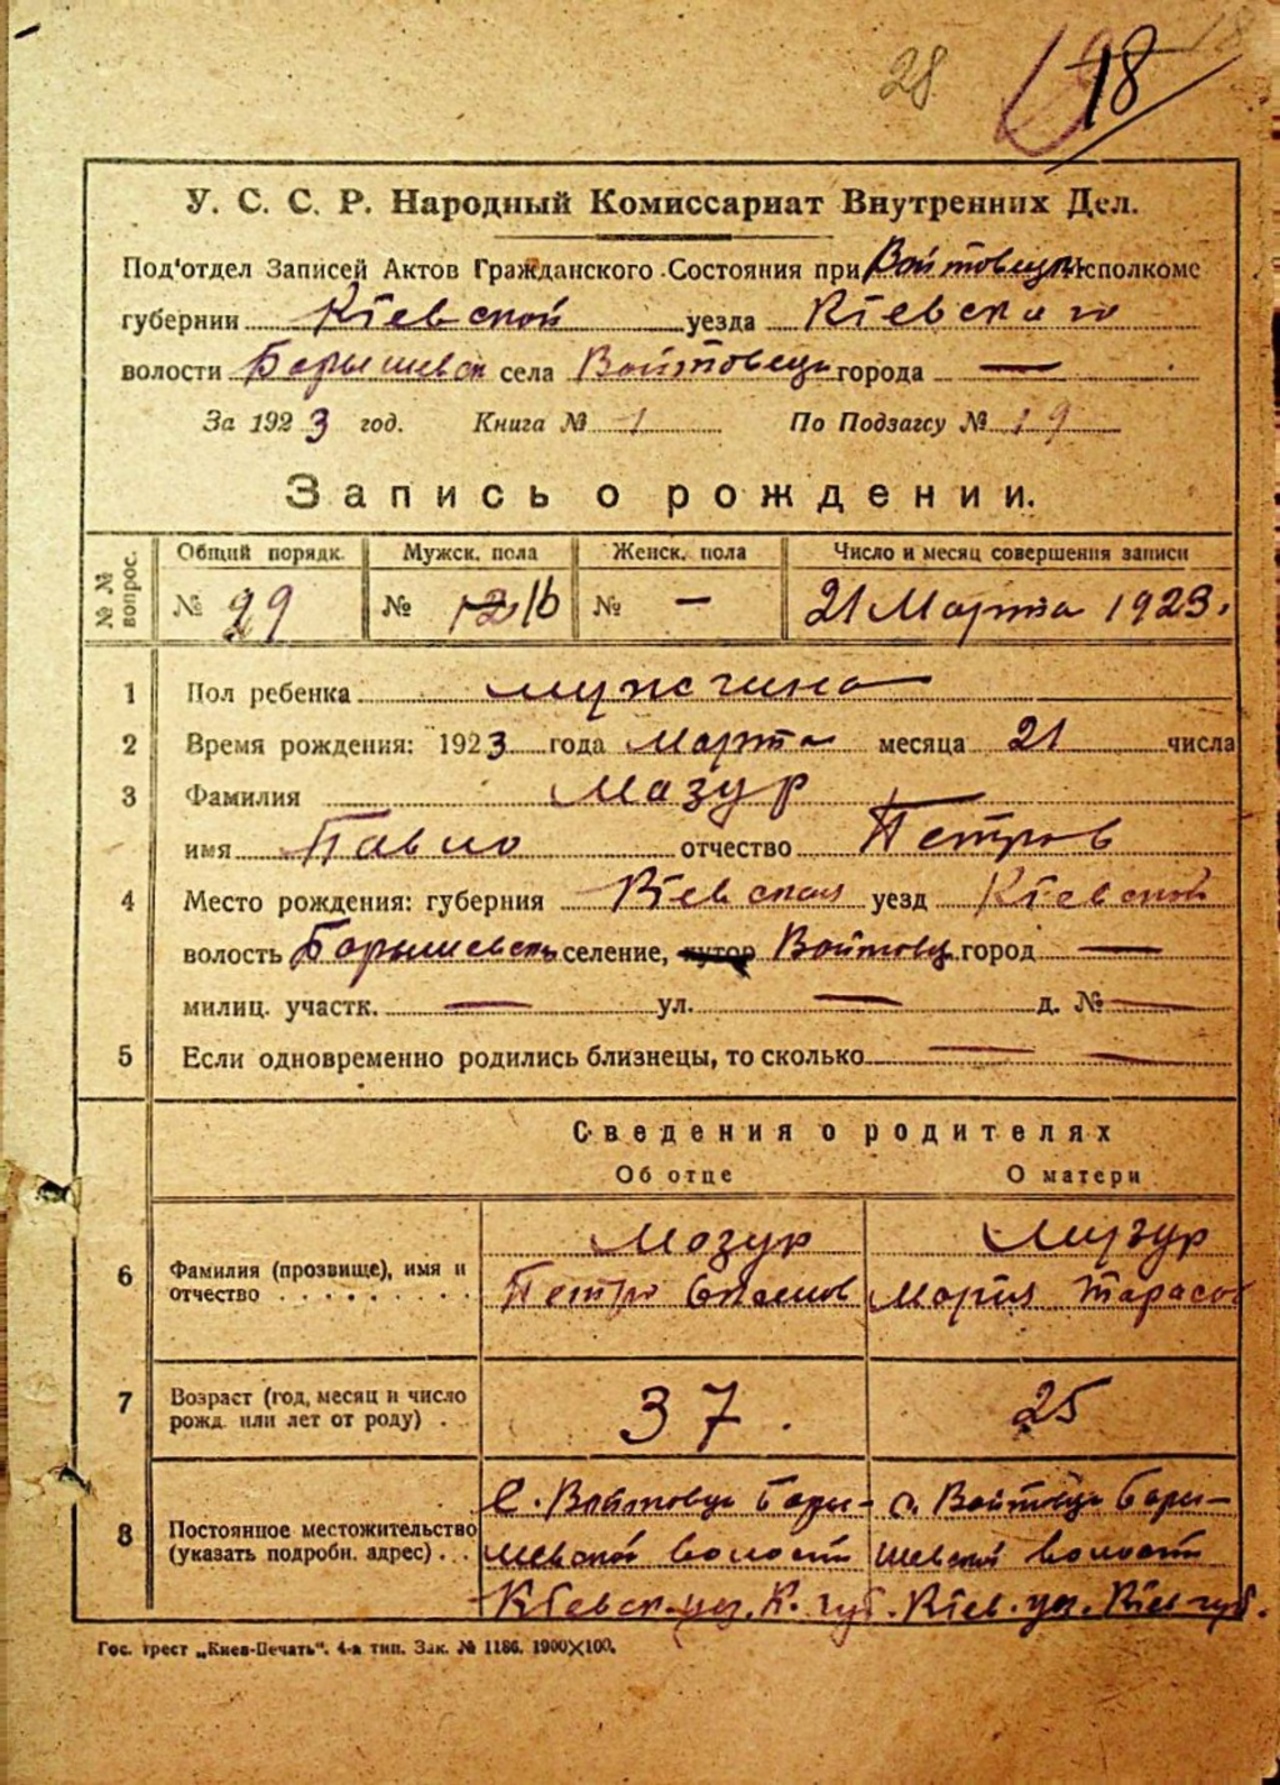 28 18
У. С. С. Р. Народный Комиссариат Внутренних Дел.
Под'отдел Записей Актов Гражданского Состояния при Войтовецк Исполкоме
губернии Кіевской уезда Кіевскаго
волости Барышевск села Войтовець города —
За 1923 год. Книга № 1 По Подзагсу № 19
Запись о рождении.
№ № вопрос. Общий порядк. Мужск. пола Женск. пола Число и месяц совершения записи
№ 29 № 16 № — 21 Марта 1923.
1 Пол ребенка мужчина
2 Время рождения: 1923 года Марта месяца 21 числа
3 Фамилия Мазур
имя Павло отчество Петров
4 Место рождения: губерния Кіевская уезд Кіевской
волость Барышевск селение, хутор Войтовц город —
милиц. участк. — ул. — д. № —
5 Если одновременно родились близнецы, то сколько — —
Сведения о родителях
Об отце О матери
Мазур Мазур
6 Фамилия (прозвище), имя и
отчество . . . . . . . . . Петро Марія Тарасов
7 Возраст (год, месяц и число
рожд. или лет от роду) . . 37. 25
С. Войтовць Бары- с. Войтовць Бары-
8 Постоянное местожительство
(указать подробн. адрес) . . . шевской волости шевской волости
Кіевск. уез. К. губ. Кіев. уез. Кіев губ.
Гос. трест „Киев-Печать". 4-я тип. Зак. № 1186. 1900×100.